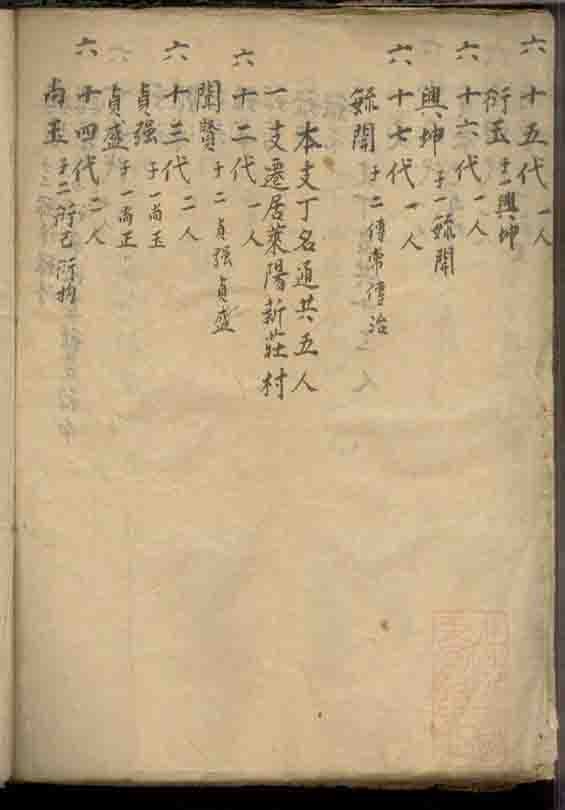 六十五代 一人
衍玉 子一興坤
六十六代 一人
興坤 子一毓開
六十七代 一人
毓開 子二傳常傳治
本支丁名通共五人
一支遷居萊陽新莊村
六十二代 一人
聞賢 子二貞强貞盛
六十三代 二人
貞强 子一尚玉
貞盛 子一尚正
六十四代 二人
尚玉 子二衍己衍均